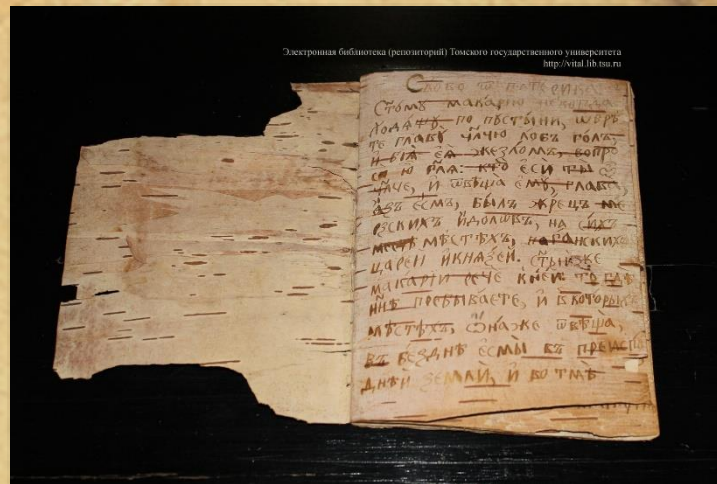 Электронная библиотека (репозиторий) Томского государственного университета
http://vital.lib.tsu.ru
Слово ѿ патерика
Стомꙋ макарию некогда
ходѧщꙋ по пꙋстыни, ѡбрѣ
те главꙋ члчю лобъ голъ,
и бїѧ еѧ жезломъ, вопро
сѧ ю глѧ: кто еси ты
члче, и ѿвѣща емꙋ, глава,
азъ есмь, былъ жрецъ ме
рзскихъ идолѡвъ, на сихъ
мѣстѣхъ,
царей и князей. стый же
макарїи рече къ ней: то гдѣ
ннѣ пребываете, и в которыхъ
мѣстѣхъ, ѡна же ѿвѣща,
въ безднѣ есмы въ преисп
днѣй земли, и во тмѣ